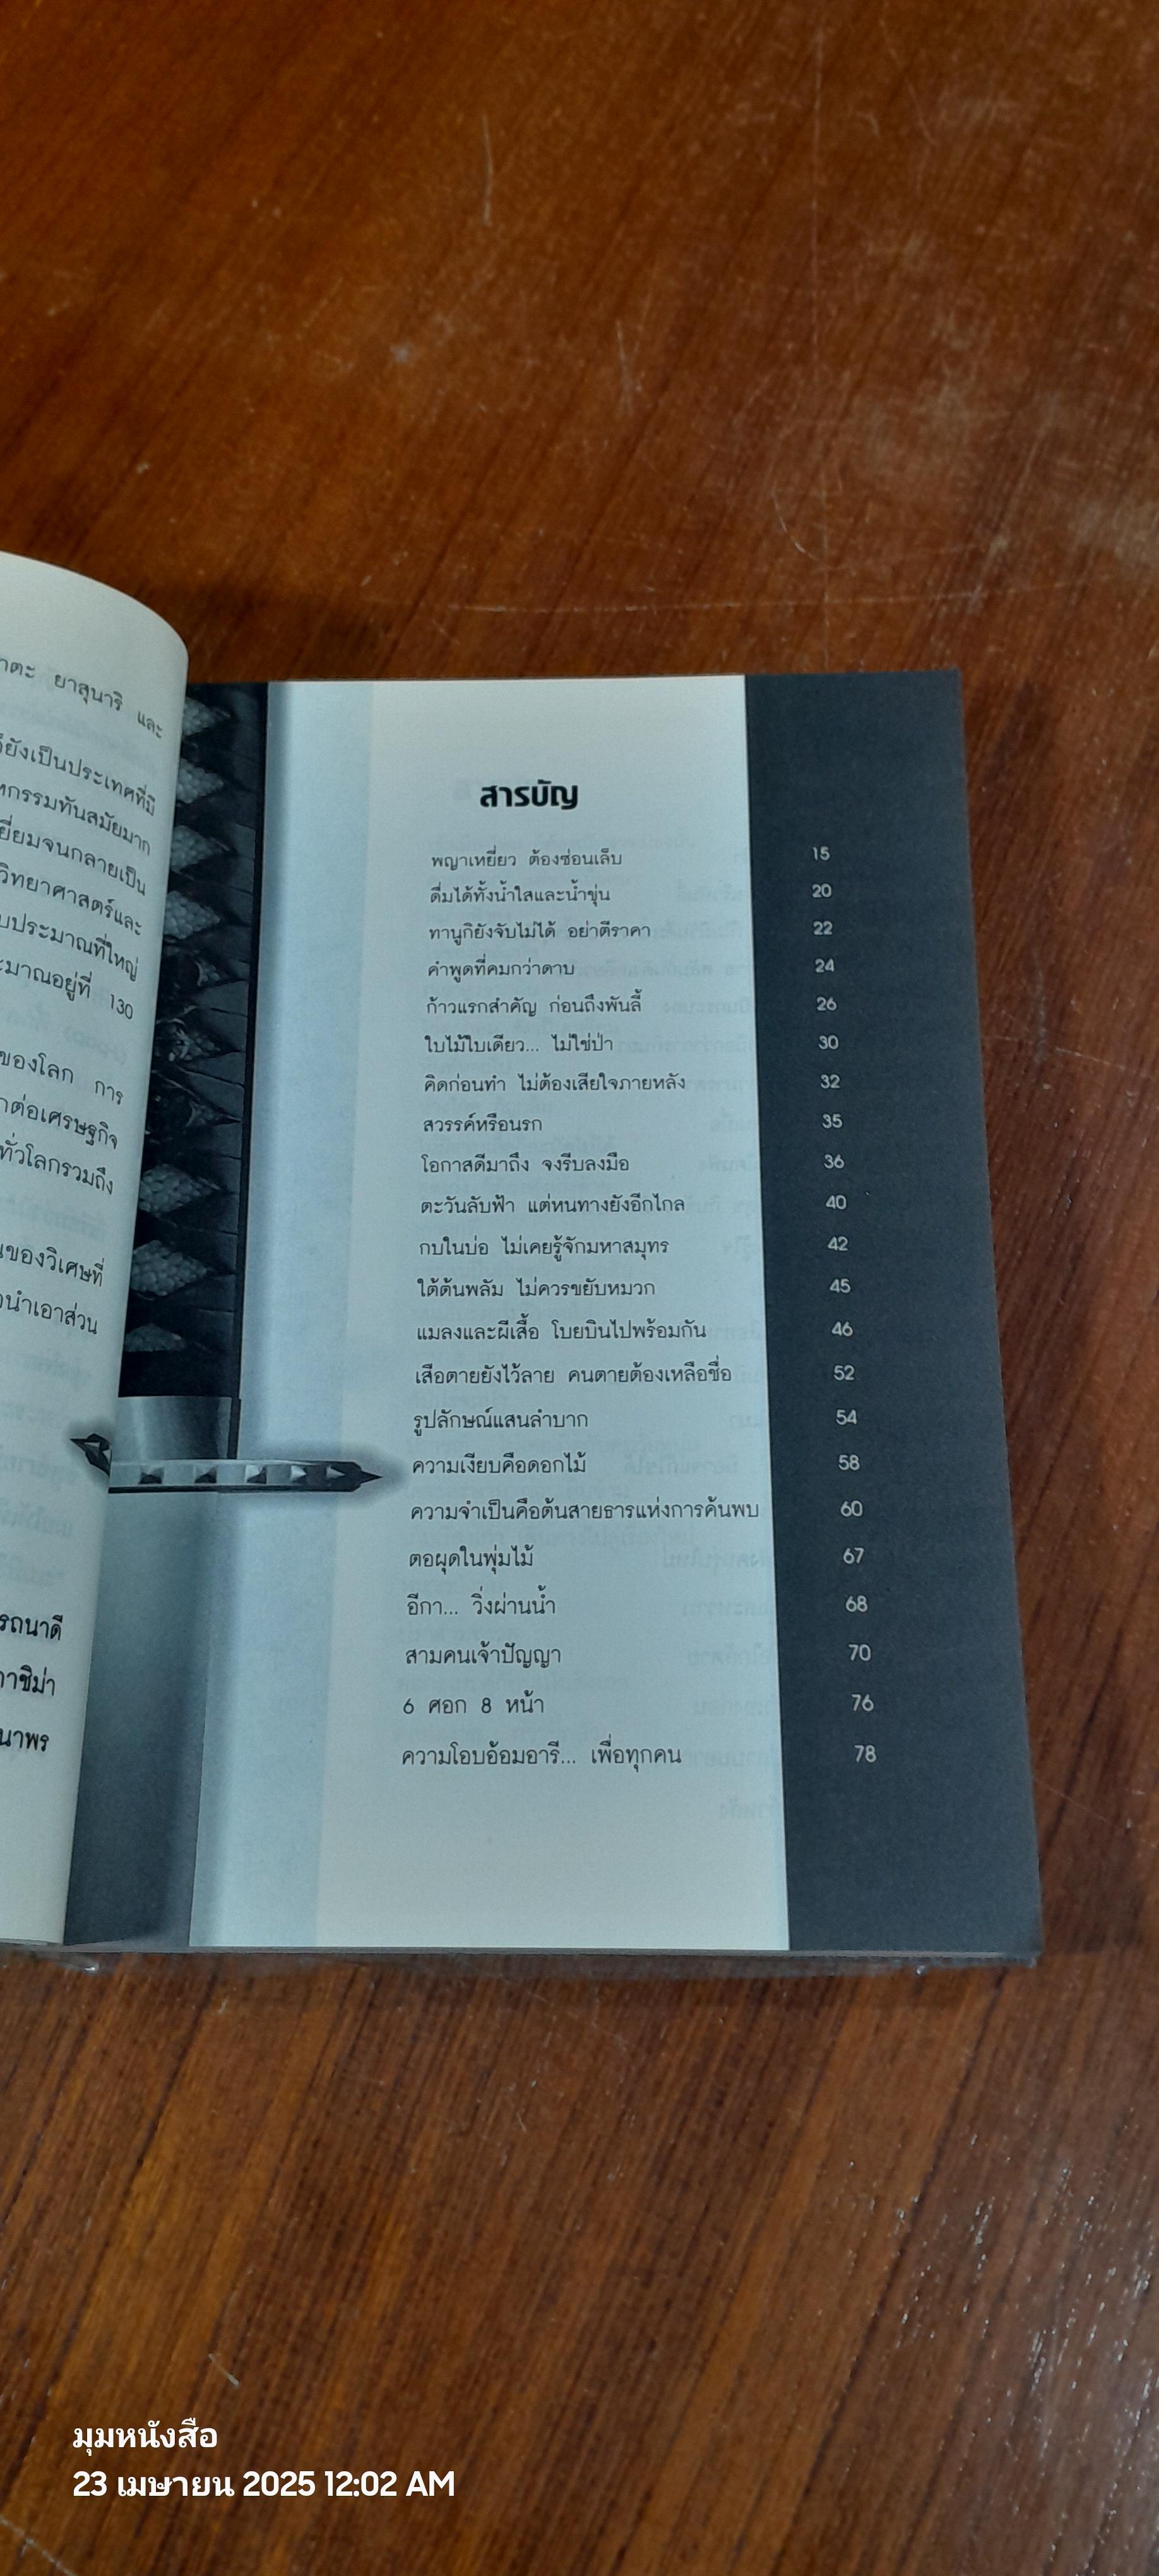 ยาสุนาริ และ
ยังเป็นประเทศที่มี
กรรมทันสมัยมาก
จนกลายเป็น
วิทยาศาสตร์และ
ประมาณที่ใหญ่
มาณอยู่ที่ 130
ของโลก การ
ต่อเศรษฐกิจ
ทั่วโลกรวมถึง
ของวิเศษที่
นำเอาส่วน
รถนาดี
าชิม่า
นาพร
สารบัญ
พญาเหยี่ยว ต้องซ่อนเล็บ 15
ดื่มได้ทั้งน้ำใสและน้ำขุ่น 20
ทานูกิยังจับไม่ได้ อย่าตีราคา 22
คำพูดที่คมกว่าดาบ 24
ก้าวแรกสำคัญ ก่อนถึงพันลี้ 26
ใบไม้ใบเดียว... ไม่ใช่ป่า 30
คิดก่อนทำ ไม่ต้องเสียใจภายหลัง 32
สวรรค์หรือนรก 35
โอกาสดีมาถึง จงรีบลงมือ 36
ตะวันลับฟ้า แต่หนทางยังอีกไกล 40
กบในบ่อ ไม่เคยรู้จักมหาสมุทร 42
ใต้ต้นพลัม ไม่ควรขยับหมวก 45
แมลงและผีเสื้อ โบยบินไปพร้อมกัน 46
เสือตายยังไว้ลาย คนตายต้องเหลือชื่อ 52
รูปลักษณ์แสนลำบาก 54
ความเงียบคือดอกไม้ 58
ความจำเป็นคือต้นสายธารแห่งการค้นพบ 60
ตอผุดในพุ่มไม้ 67
อีกา... วิ่งผ่านน้ำ 68
สามคนเจ้าปัญญา 70
6 ศอก 8 หน้า 76
ความโอบอ้อมอารี... เพื่อทุกคน 78
มุมหนังสือ
23 เมษายน 2025 12:02 AM